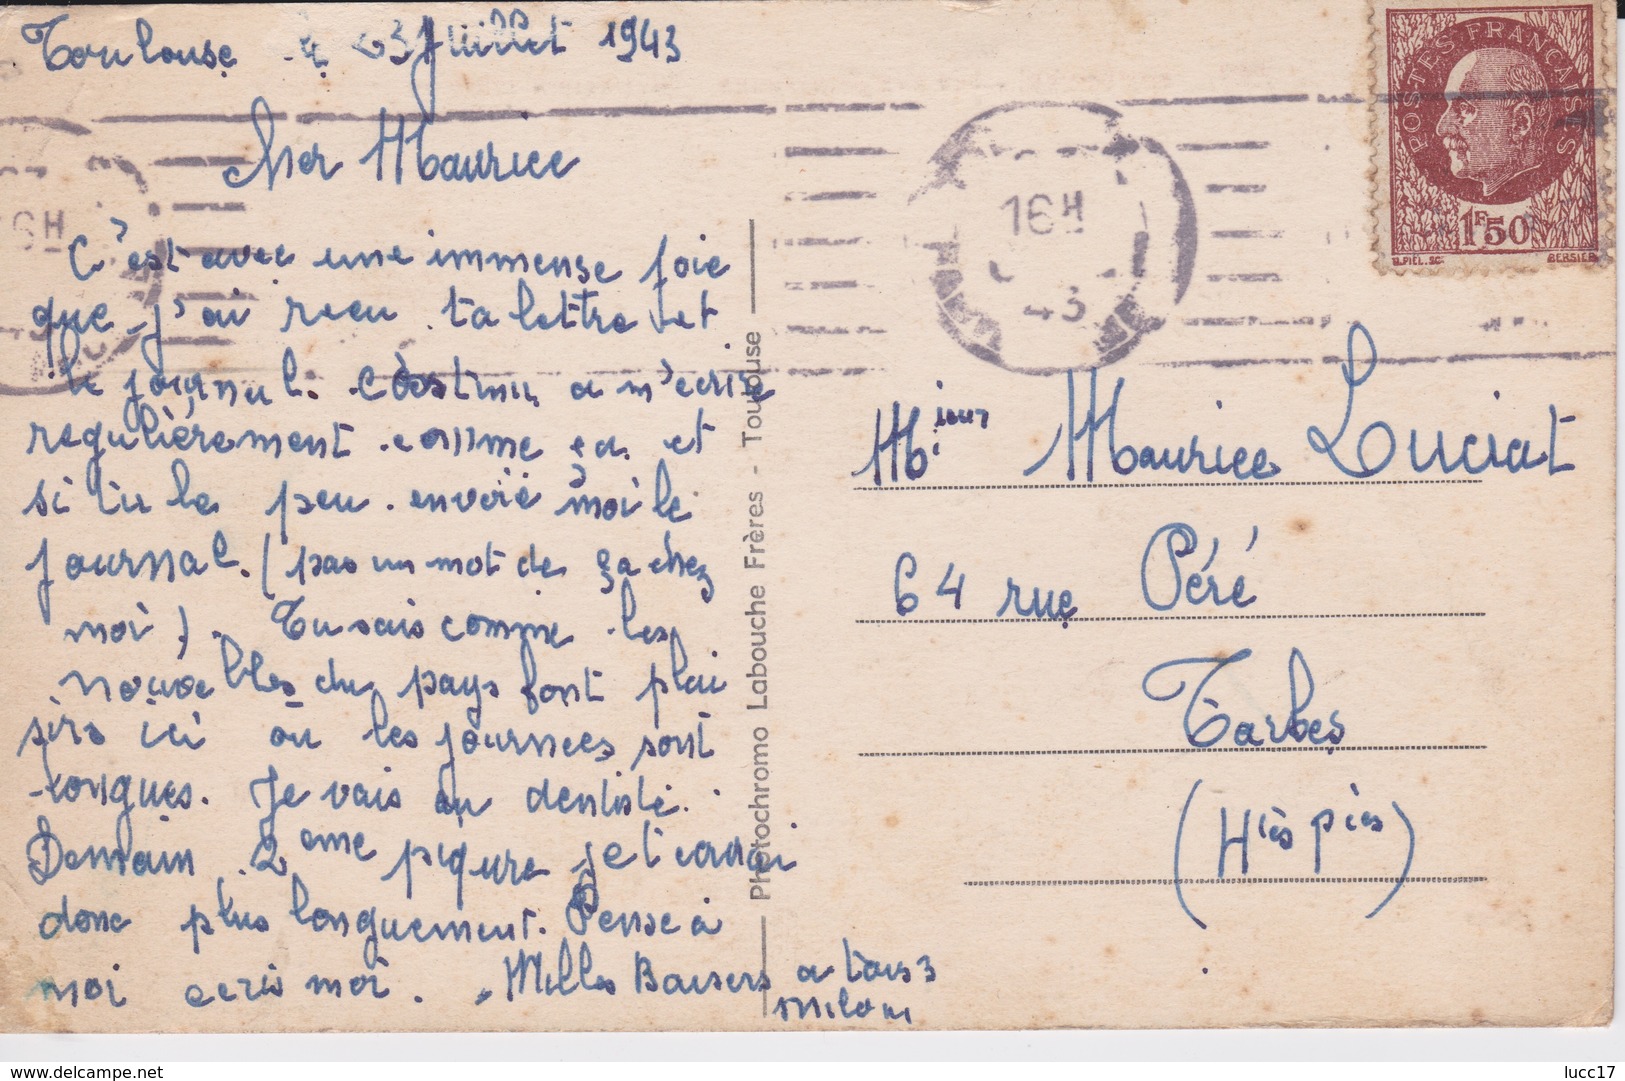 Toulouse le 23 Juillet 1943
Cher Maurice
C'est avec une immense joie
que j'ai recu ta lettre et
le journal. Continu a m'ecrire
regulièrement comme ça et
si tu le peu envoie moi le
journal. (pas un mot de ça chez
moi). Tu sais comme les
nouvelles du pays font plai
sirs ici où les journees sont
longues. Je vais au dentiste.
Demain 2eme piqure je t'ecrirai
donc plus longuement. Pense à
moi ecris moi. Milles Baisers a tous 3
Photochromo Labouche Frères - Toulouse
16H
43
6H
POSTES FRANÇAISES
1F50
D.PIEL.SC
BERSIER
Maurice Luciat
64 rue Péré
Tarbes
(Htès pies)
delcampe.net
lucc17